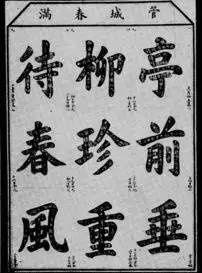 管城春滿
亭前垂
柳珍重
待春風